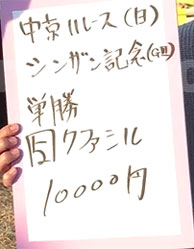 中京11レース(日)
シンザン記念(GⅢ)
単勝
15 クファシル
10000円